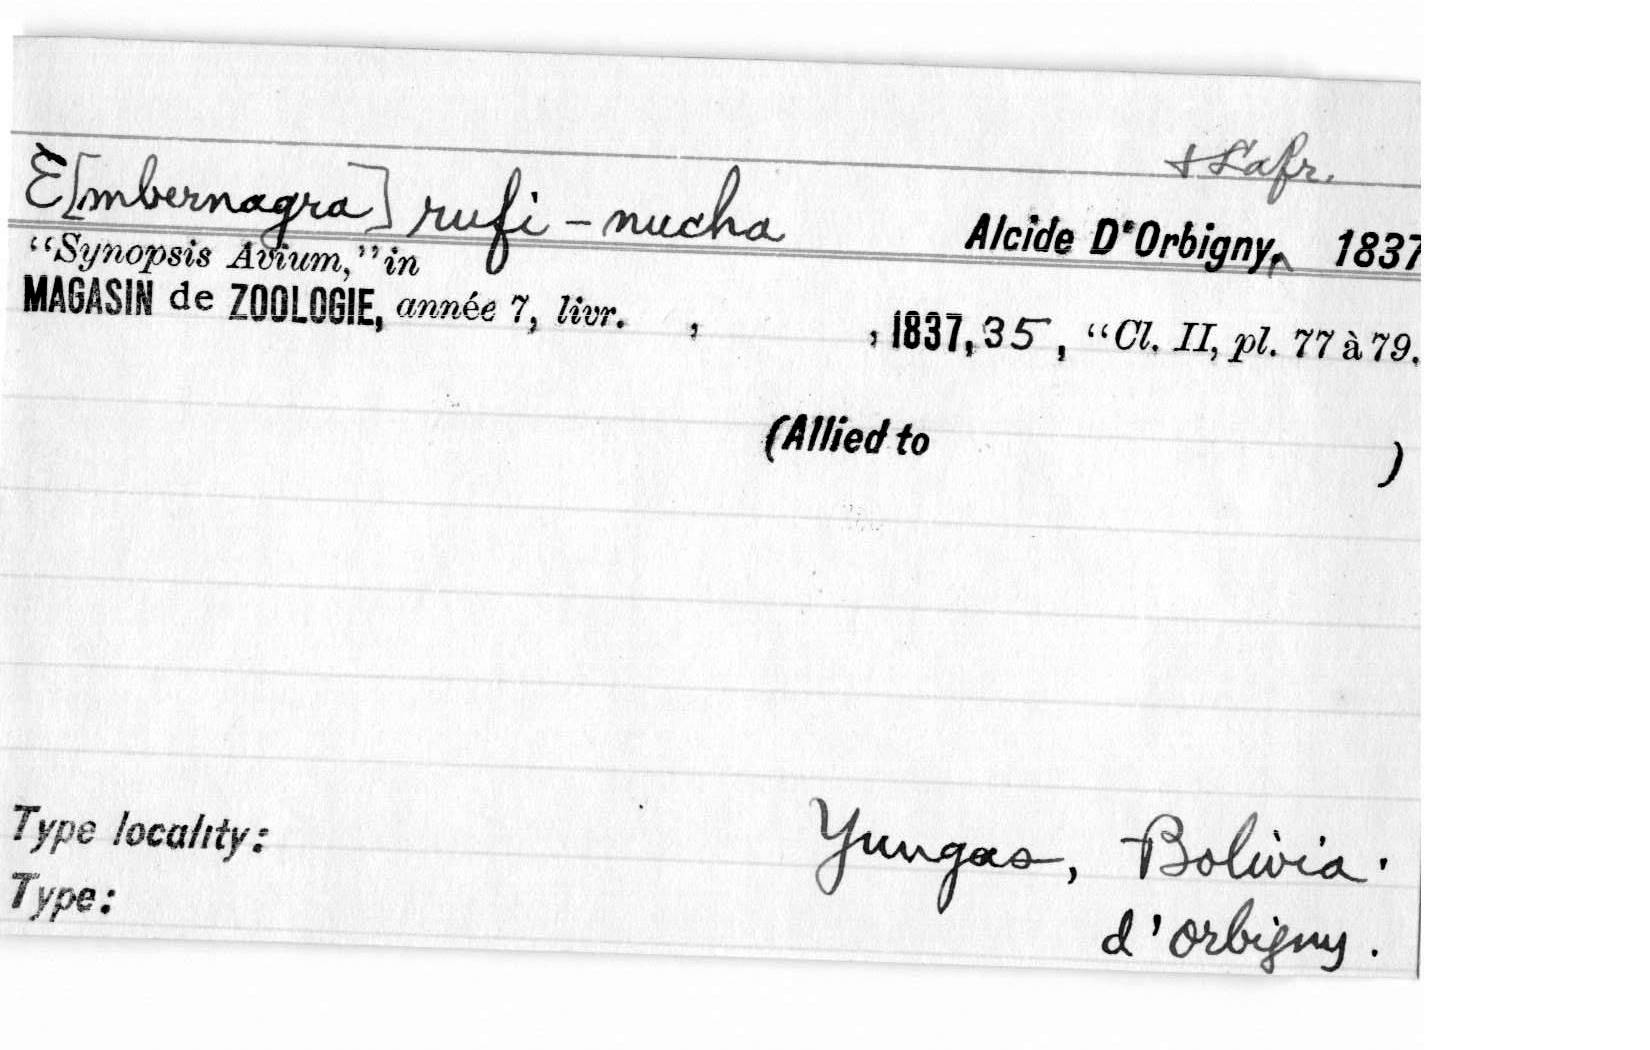 & Lafr.
E[mbernagra] rufi-nucha Alcide D'Orbigny,^ 1837
“Synopsis Avium,” in
MAGASIN de ZOOLOGIE, année 7, livr. , , 1837, 35, “Cl. II, pl. 77 à 79.
(Allied to )
Type locality: Yungas, Bolivia.
Type: d'Orbigny.